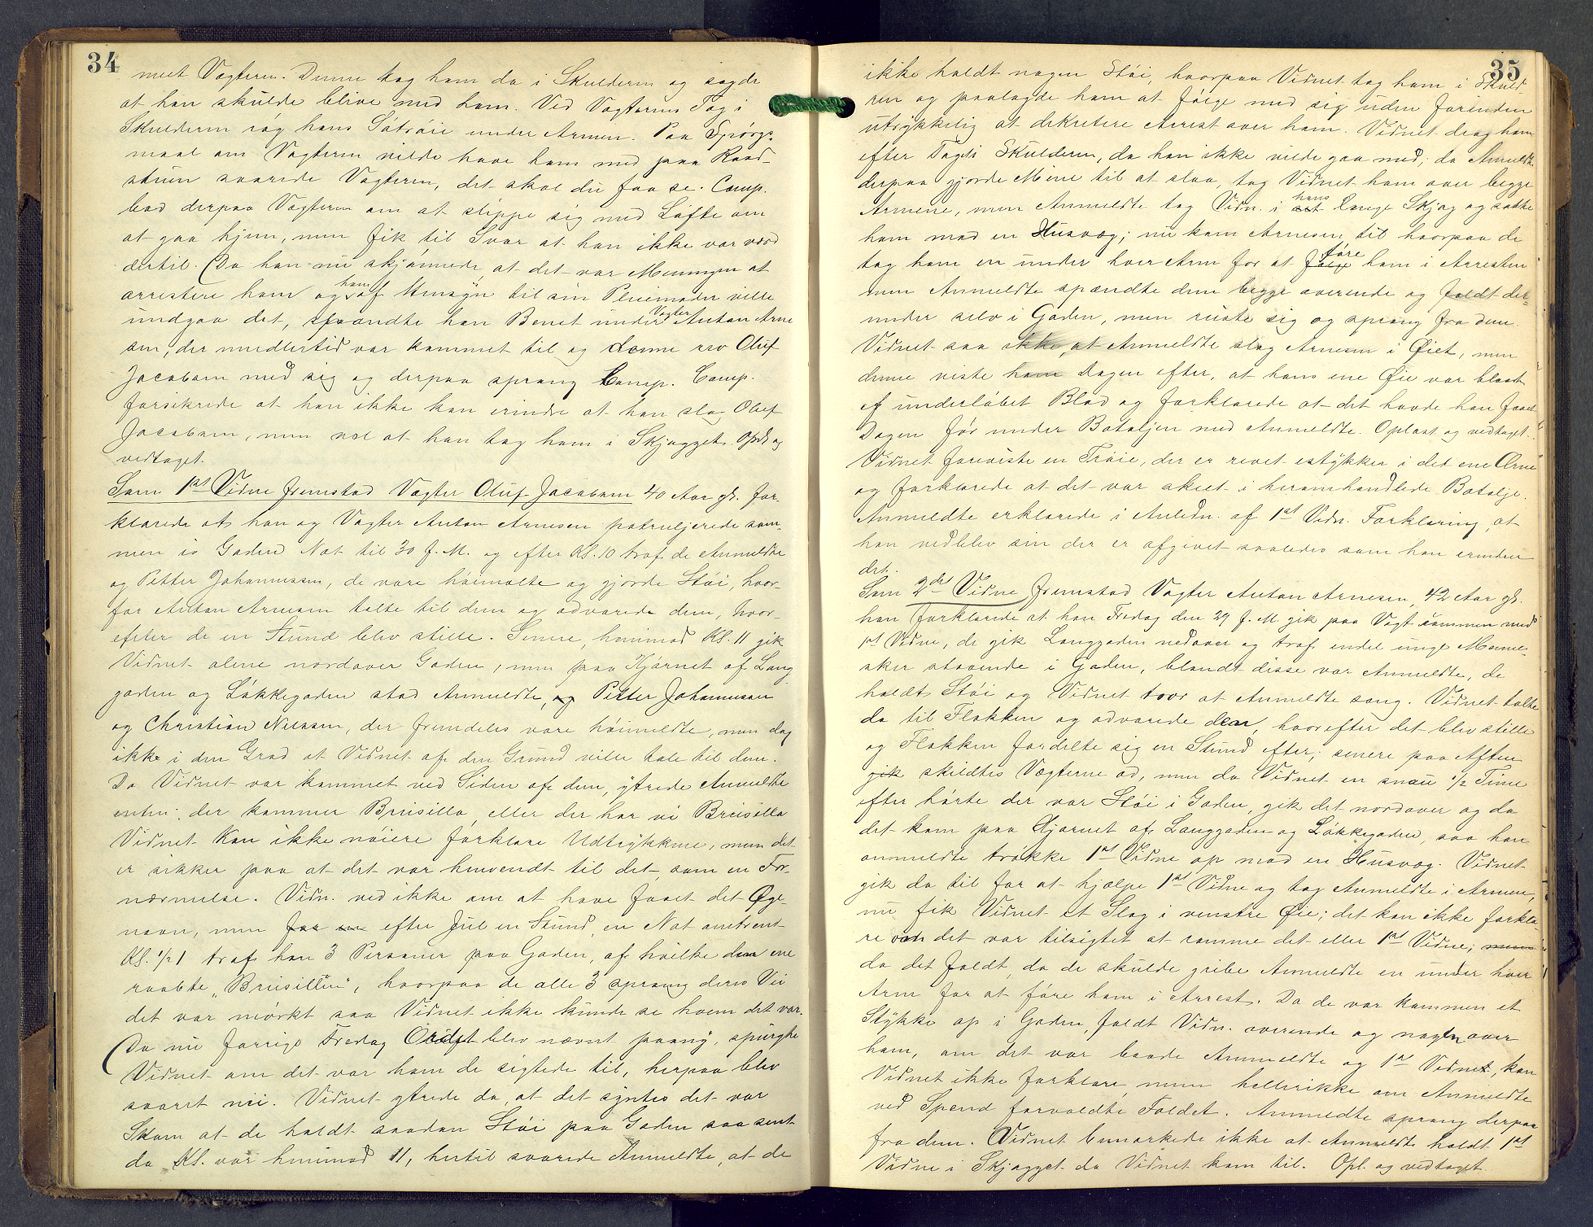 34
med Vægteren. Denne tog ham da i Skulderen og sagde
at han skulde blive med ham. Ved Vægterens Tag i
Skulderen røg hans Søtrøie under Armen. Paa Spørgs-
maal om Vægteren vilde have ham med paa Raad-
stuen svarede Vægteren, det skal du faa se. Comp.
bad derpaa Vægteren om at slippe sig med Løfte om
at gaa hjem, men fik til Svar at han ikke var værd
dertil. (Da han nu skjønnede, at det var Meningen at
arrestere ham og han af Hensyn til sin Pleiemoder vilde
undgaa det, spændte han Benet under Vægter Anton Arne
sen, der imidlertid var kommet til og denne rev Oluf
Jacobsen med sig og derpaa sprang Comp. Comp.
forsikrede at han ikke kan erindre at han slog Oluf
Jacobsen, men vel at han tog ham i Skjægget. Opl. og
vedtaget.
Som 1st Vidne fremstod Vægter Oluf Jacobsen 40 Aar gl. for-
klarede at han og Vægter Anton Arnesen patruljerede sam-
men i Gaderne Nat til 30 f. M. og efter Kl. 10 traf de Anmeldte
og Petter Johannessen, de vare høimælte og gjorde Støi, hvor-
for Anton Arnesen talte til dem og advarede dem, hvor-
efter de en Stund blev stille. Senere, henimod Kl. 11 gik
Vidnet alene nordover Gaden, men paa Hjørnet af Lang
gaden og Løkkegaden stod Anmeldte, og Petter Johannessen
og Christian Nielsen, der fremdeles vare høimælte, men dog
ikke i den Grad at Vidnet af den Grund vilde tale til dem.
Da Vidnet var kommet ved Siden af dem, ytrede Anmeldte
enten: der kommer Brusilla, eller der har vi Brusilla
Vidnet kan ikke nøiere forklare Udtrykkene, men det
er sikker paa at det var henvendt til det som en For-
nærmelse. Vidn. ved ikke om at have faaet det Øge-
navn, men for efter Jul en Stund, en Nat omtrent
Kl. ½ 1 traf han 3 Personer paa Gaden, af hvilke den ene
raabte „Brusilla", hvorpaa de alle 3 sprang deres Vei
det var mørkt saa Vidnet ikke kunde se hvem det var.
(Da nu forrige Fredag Ordet blev nævnt paany, spurgte
Vidnet om det var ham de sigtede til, herpaa blev
svaret nei. Vidnet ytrede da, at det syntes det var
Skam at de holdt saadan Støi paa Gaden saa sent
da Kl. var henimod 11, hertil svarede Anmeldte, at de
35
ikke holdt nogen Støi, hvorpaa Vidnet tog ham i Skuld-
ren og paalagde ham at følge med sig uden forinden
udtrykkelig at dekretere Arrest over ham. Vidnet drog ham
efter Taget i Skulderen, da han ikke vilde gaa med; da Anmeldte
derpaa gjorde Mine til at slaa, tog Vidnet ham over begge
Armene, men Anmeldte tog Vidn. i hans lange Skjæg og satte
ham mod en Husvæg; nu kom Arnesen til hvorpaa de
tog ham en under hver Arm for at føre ham i Arresten
men Anmeldte spændte dem begge overende og faldt der-
under selv i Gaden, men reiste sig og sprang fra dem.
Vidnet saa ikke, at Anmeldte slog Arnesen i Øiet, men
denne viste ham Dagen efter, at hans ene Øie var blaat
af underløbet Blod og forklarede at det havde han faaet
Dagen før under Bataljen med Anmeldte. Oplæst og vedtaget.
Vidnet foreviste en Trøie, der er revet istykker i det ene Ærme
og forklarede at det var skeet i heromhandlede Batalje.
Anmeldte erklærede i Anledn. af 1st Vidn. Forklaring, at
han vedblev sin der er afgivet saaledes som han erindrer
det.
Som 2det Vidne fremstod Vægter Anton Arnesen, 42 Aar gl.
han forklarede at han Fredag den 29 f. M gik paa Vagt sammen med
1st Vidne, de gik Langgaden nedover og traf endel unge Menne-
sker staaende i Gaden, blandt disse var Anmeldte, de
holdt Støi og Vidnet tror at Anmeldte sang. Vidnet talte
da til Flokken og advarede den, hvorefter det blev stille
og Flokken fordelte sig en Stund efter; senere paa Aften
gik skildtes Vægterne ad, men da Vidnet en snau ½ Time
efter hørte der var Støi i Gaden, gik det nordover og da
det kom paa Hjørnet af Langgaden og Løkkegaden, saa han
anmeldte trække 1st Vidne op mod en Husvæg. Vidnet
gik da til for at hjælpe 1st Vidne og tog Anmeldte i Armen,
nu fik Vidnet et Slag i venstre Øie; det kan ikke forkla-
re om det var tilsigtet at ramme det eller 1st Vidne; men
da det faldt, da de skulde gribe Anmeldte en under hver
Arm for at føre ham i Arrest. Da de var kommen et
Stykke op i Gaden, faldt Vidn. overende og nogen over
ham, om det var baade Anmeldte og 1st Vidnet, kan
Vidnet ikke forklare, men hellerikke om Anmeldte
ved Spænd forvoldte Faldet. Anmeldte sprang derpaa
fra dem. Vidnet bemærkede ikke at Anmeldte holdt 1st
Vidne i Skjægget da Vidnet kom til. Opl. og vedtaget